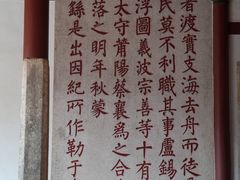 者渡實支海去舟而徒
民莫不利職其事盧錫
浮圖義波宗善等十有
太守莆陽蔡襄為之合
落之明年秋蒙
繇是出因紀所作勒于